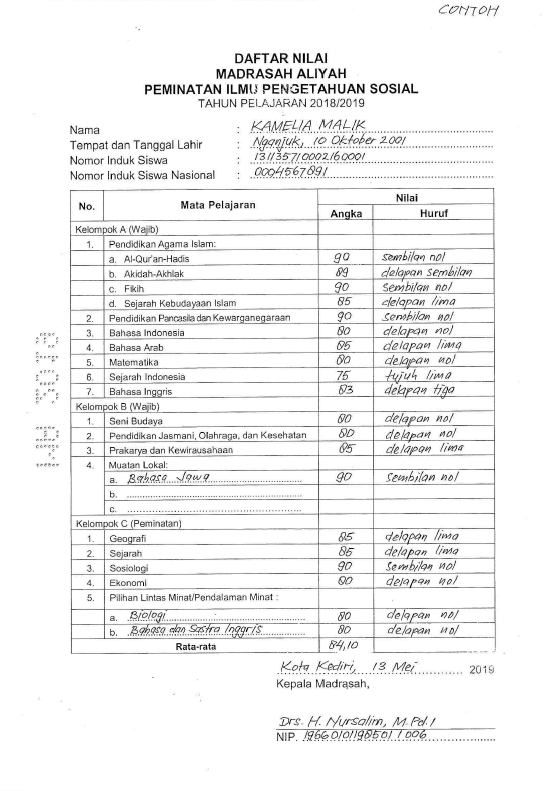 CONTOH
DAFTAR NILAI
MADRASAH ALIYAH
PEMINATAN ILMU PENGETAHUAN SOSIAL
TAHUN PELAJARAN 2018/2019
Nama : KAMELIA MALIK
Tempat dan Tanggal Lahir : Nganjuk, 10 Oktober 2001
Nomor Induk Siswa : 131135710002160001
Nomor Induk Siswa Nasional : 0004567891
No. Mata Pelajaran Nilai
Angka Huruf
Kelompok A (Wajib)
1. Pendidikan Agama Islam:
a. Al-Qur'an-Hadis 90 sembilan nol
b. Akidah-Akhlak 89 delapan sembilan
c. Fikih 90 sembilan nol
d. Sejarah Kebudayaan Islam 85 delapan lima
2. Pendidikan Pancasila dan Kewarganegaraan 90 sembilan nol
3. Bahasa Indonesia 80 delapan nol
4. Bahasa Arab 85 delapan lima
5. Matematika 80 delapan nol
6. Sejarah Indonesia 75 tujuh lima
7. Bahasa Inggris 83 delapan tiga
Kelompok B (Wajib)
1. Seni Budaya 80 delapan nol
2. Pendidikan Jasmani, Olahraga, dan Kesehatan 80 delapan nol
3. Prakarya dan Kewirausahaan 85 delapan lima
4. Muatan Lokal:
a. Bahasa Jawa 90 sembilan nol
b.
c.
Kelompok C (Peminatan)
1. Geografi 85 delapan lima
2. Sejarah 85 delapan lima
3. Sosiologi 90 sembilan nol
4. Ekonomi 80 delapan nol
5. Pilihan Lintas Minat/Pendalaman Minat :
a. Biologi 80 delapan nol
b. Bahasa dan Sastra Inggris 80 delapan nol
Rata-rata 84,10
Kota Kediri, 13 Mei 2019
Kepala Madrasah,
Drs. H. Nursalim, M.Pd.I
NIP. 196601011985011006